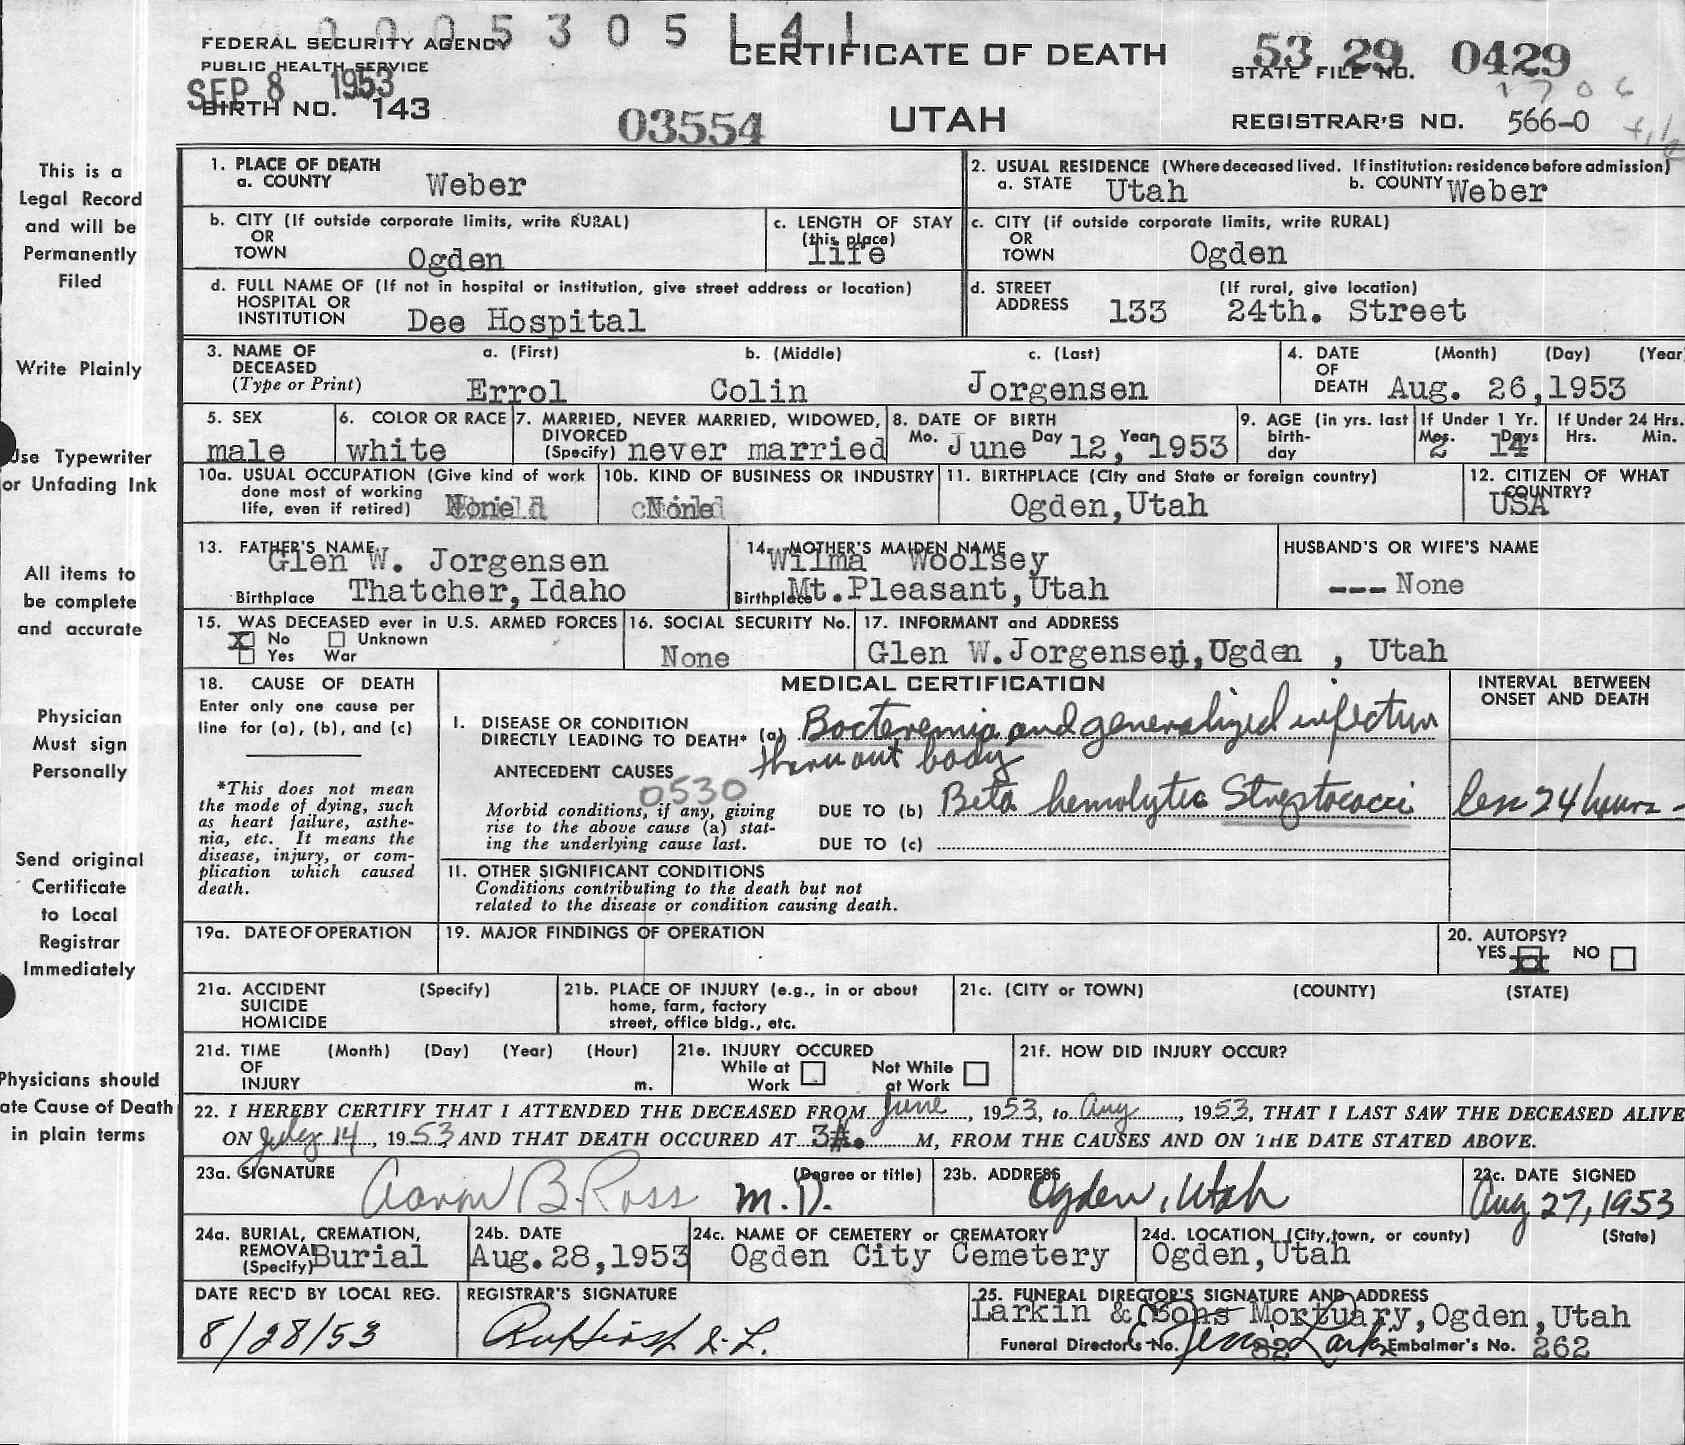 0005305141
FEDERAL SECURITY AGENCY
PUBLIC HEALTH SERVICE
SEP 8 1953
BIRTH NO. 143
03554
CERTIFICATE OF DEATH
UTAH
53 29 0429
STATE FILE NO.
REGISTRAR'S NO. 566-0
This is a
Legal Record
and will be
Permanently
Filed
Write Plainly
Use Typewriter
or Unfading Ink
All items to
be complete
and accurate
Physician
Must sign
Personally
Send original
Certificate
to Local
Registrar
Immediately
Physicians should
ate Cause of Death
in plain terms
1. PLACE OF DEATH
a. COUNTY Weber
2. USUAL RESIDENCE (Where deceased lived. If institution: residence before admission)
a. STATE Utah b. COUNTY Weber
b. CITY (If outside corporate limits, write RURAL)
OR
TOWN Ogden
c. LENGTH OF STAY
(this place)
life
c. CITY (if outside corporate limits, write RURAL)
OR
TOWN Ogden
d. FULL NAME OF (If not in hospital or institution, give street address or location)
HOSPITAL OR
INSTITUTION Dee Hospital
d. STREET (If rural, give location)
ADDRESS 133 24th. Street
3. NAME OF a. (First) b. (Middle) c. (Last)
DECEASED
(Type or Print) Errol Colin Jorgensen
4. DATE (Month) (Day) (Year
OF
DEATH Aug. 26,1953
5. SEX
male
6. COLOR OR RACE
white
7. MARRIED, NEVER MARRIED, WIDOWED,
DIVORCED
(Specify) never married
8. DATE OF BIRTH
Mo. June Day 12, Year 1953
9. AGE (in yrs. last
birth-
day
If Under 1 Yr.
Mos. Days
2 14
If Under 24 Hrs.
Hrs. Min.
10a. USUAL OCCUPATION (Give kind of work
done most of working
life, even if retired) None
10b. KIND OF BUSINESS OR INDUSTRY
None
11. BIRTHPLACE (City and State or foreign country)
Ogden,Utah
12. CITIZEN OF WHAT
COUNTRY?
USA
13. FATHER'S NAME
Glen W. Jorgensen
Birthplace Thatcher, Idaho
14. MOTHER'S MAIDEN NAME
Wilma Woolsey
Birthplace Mt.Pleasant,Utah
HUSBAND'S OR WIFE'S NAME
--- None
15. WAS DECEASED ever in U.S. ARMED FORCES
X No Unknown
Yes War
16. SOCIAL SECURITY No.
None
17. INFORMANT and ADDRESS
Glen W.Jorgensen,Ogden , Utah
18. CAUSE OF DEATH
Enter only one cause per
line for (a), (b), and (c)
*This does not mean
the mode of dying, such
as heart failure, asthe-
nia, etc. It means the
disease, injury, or com-
plication which caused
death.
MEDICAL CERTIFICATION
INTERVAL BETWEEN
ONSET AND DEATH
I. DISEASE OR CONDITION
DIRECTLY LEADING TO DEATH* (a) Bacteremia and generalized infection
thruout body
ANTECEDENT CAUSES
0530
Morbid conditions, if any, giving
rise to the above cause (a) stat-
ing the underlying cause last.
DUE TO (b) Beta hemolytic Streptococci less 24 hours -
DUE TO (c)
II. OTHER SIGNIFICANT CONDITIONS
Conditions contributing to the death but not
related to the disease or condition causing death.
19a. DATE OF OPERATION
19. MAJOR FINDINGS OF OPERATION
20. AUTOPSY?
YES X NO
21a. ACCIDENT (Specify)
SUICIDE
HOMICIDE
21b. PLACE OF INJURY (e.g., in or about
home, farm, factory
street, office bldg., etc.
21c. (CITY or TOWN) (COUNTY) (STATE)
21d. TIME (Month) (Day) (Year) (Hour)
OF
INJURY m.
21e. INJURY OCCURED
While at Not While
Work at Work
21f. HOW DID INJURY OCCUR?
22. I HEREBY CERTIFY THAT I ATTENDED THE DECEASED FROM June, 1953, to Aug, 1953, THAT I LAST SAW THE DECEASED ALIVE
ON July 14, 1953 AND THAT DEATH OCCURED AT 3A. M, FROM THE CAUSES AND ON THE DATE STATED ABOVE.
23a. SIGNATURE (Degree or title)
Aaron B. Ross M.D.
23b. ADDRESS
Ogden, Utah
23c. DATE SIGNED
Aug 27, 1953
24a. BURIAL, CREMATION,
REMOVAL
(Specify) Burial
24b. DATE
Aug.28,1953
24c. NAME OF CEMETERY or CREMATORY
Ogden City Cemetery
24d. LOCATION (City,town, or county) (State)
Ogden,Utah
DATE REC'D BY LOCAL REG.
8/28/53
REGISTRAR'S SIGNATURE
25. FUNERAL DIRECTOR'S SIGNATURE AND ADDRESS
Larkin & Sons Mortuary,Ogden,Utah
Funeral Directors No. 82 Embalmer's No. 262